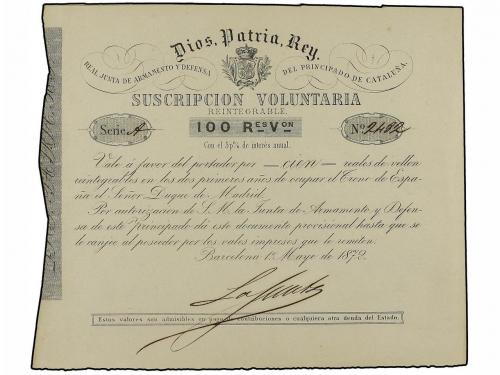 Dios, Patria, Rey.
REAL JUNTA DE ARMAMENTO Y DEFENSA DEL PRINCIPADO DE CATALUÑA.
SUSCRIPCION VOLUNTARIA
REINTEGRABLE.
Serie A 100 Rˢ Vᴼᴺ Nº 2482
Con el 3 p% de interés anual.
Vale á favor del portador por — cien — reales de vellon
reintegrables en los dos primeros años de ocupar el Trono de Espa-
ña el Señor Duque de Madrid.
Por autorizacion de S. M. la Junta de Armamento y Defen-
sa de este Principado da este documento provisional hasta que se
le canjee al poseedor por los vales impresos que le remiten.
Barcelona 1º Mayo de 1872.
Estos valores son admisibles en pago de contribuciones o cualquiera otra deuda del Estado.